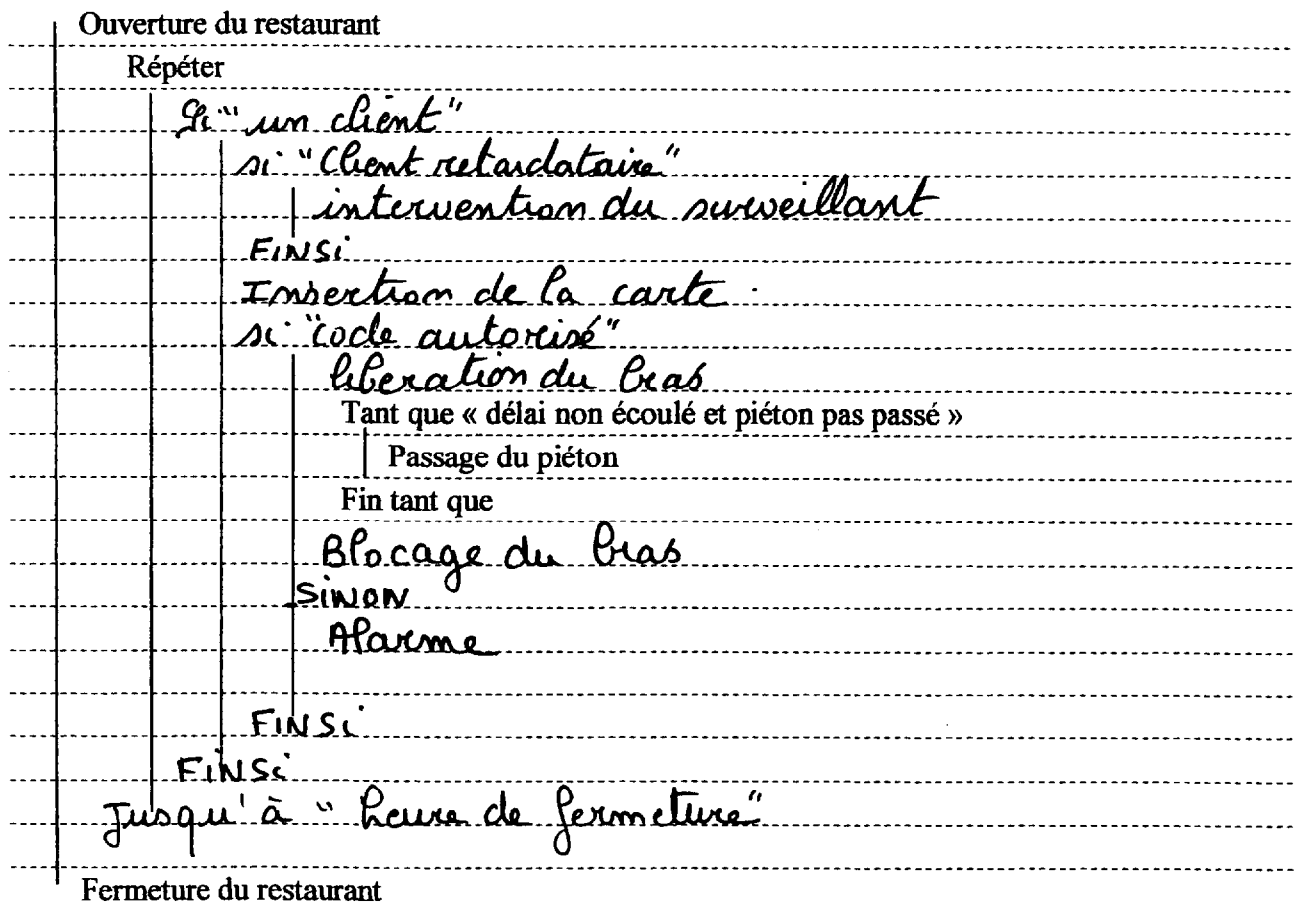 Ouverture du restaurant
Répéter
Si "un client"
si "Client retardataire"
intervention du surveillant
FINSi
Insertion de la carte.
si "code autorisé"
liberation du bras
Tant que « délai non écoulé et piéton pas passé »
Passage du piéton
Fin tant que
Blocage du bras
SiNON
Alarme
FINSi
FINSi
Jusqu'à "heure de fermeture"
Fermeture du restaurant